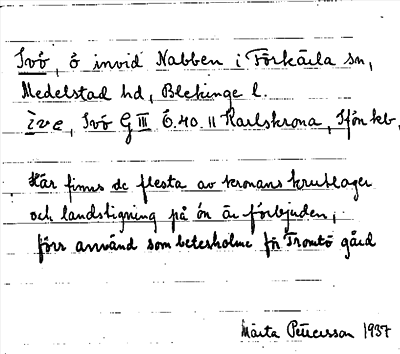 Ivö, ö invid Nabben i Förkärla sn,
Medelstad hd, Blekinge l.
ive, Ivö G III Ö. 40 11 Karlskrona, Sjön kb,
Här finns de flesta av kronans krutlager
och landstigning på ön är förbjuden,
förr använd som betesholme för Tromtö gård
Märta Petersson 1937